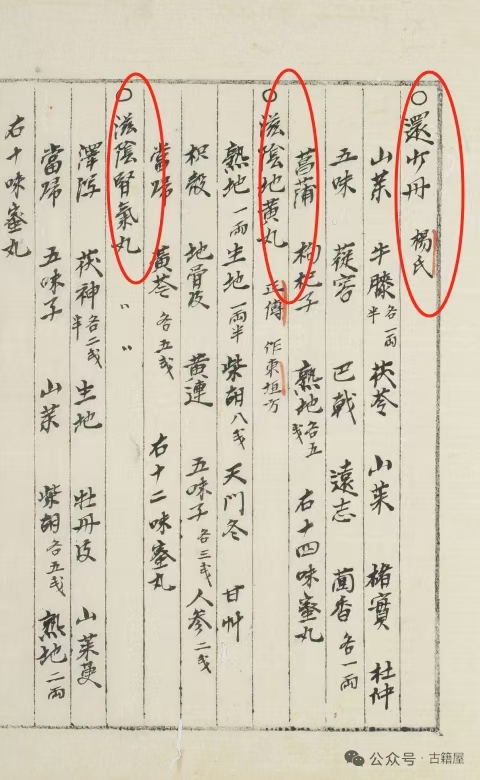 ○還少丹 楊氏
山茱 牛膝各一兩半 茯苓 山茱 楮實 杜仲
五味 蓯容 巴戟 遠志 茴香各一兩
菖蒲 枸杞子 熟地各五戔 右十四味蜜丸
○滋陰地黃丸 正傳 作東垣方
熟地一兩 生地一兩半 柴胡八戔 天門冬 甘艸
枳殼 地骨皮 黃連 五味子各三戔 人参二戔
當歸 黃芩各五戔 右十二味蜜丸
○滋陰腎氣丸 〃 〃
澤泻 茯神各二戔半 生地 牡丹皮 山茱萸
當歸 五味子 山茱 柴胡各五戔 熟地二兩
右十味蜜丸
公众号·古籍屋